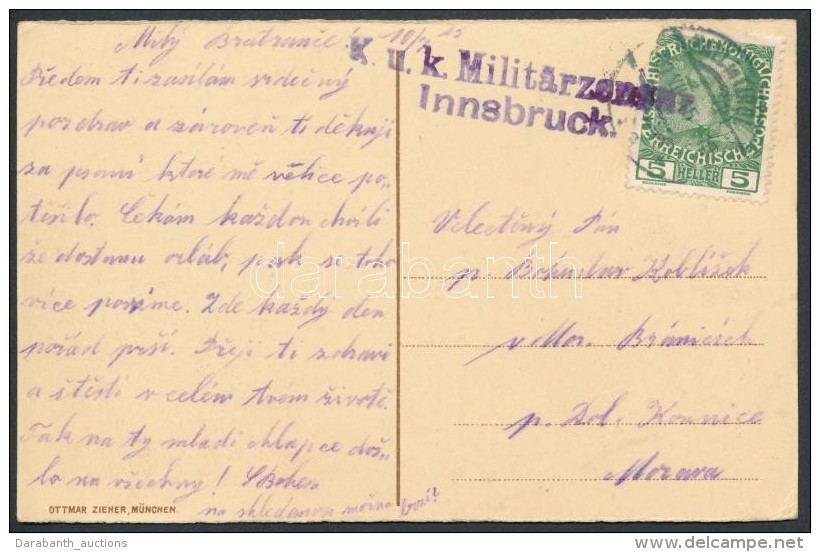 Milý Bratranče! 10/5 15
Předem ti zasílám srdečný
pozdrav a zároveň ti děkuji
za psaní které mě velice po-
těšilo. Čekám každou chvíli
že dostanu urláb, pak si toho
více povíme. Zde každý den
pořád prší. Přeji ti zdraví
a štěstí v celém tvém životě.
Tak na ty mladí chlapce doš-
lo na všechny! S Bohem
na shledanou možná brzo!
OTTMAR ZIEHER, MÜNCHEN.
K. u. k. Militärzensur
Innsbruck.
5 HELLER 5
Velectěný Pán
p. Bohuslav Koblížek
v Mor. Bránicích
p. Dol. Kounice
Morava
darabanth
Darabanth_auctions
delcampe.net